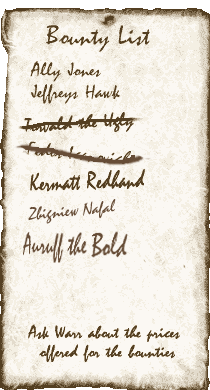 Bounty List
Ally Jones
Jeffreys Hawk
Torvald the Ugly
Kermatt Redhand
Zbigniew Nafal
Auruff the Bold
Ask Warr about the prices
offered for the bounties